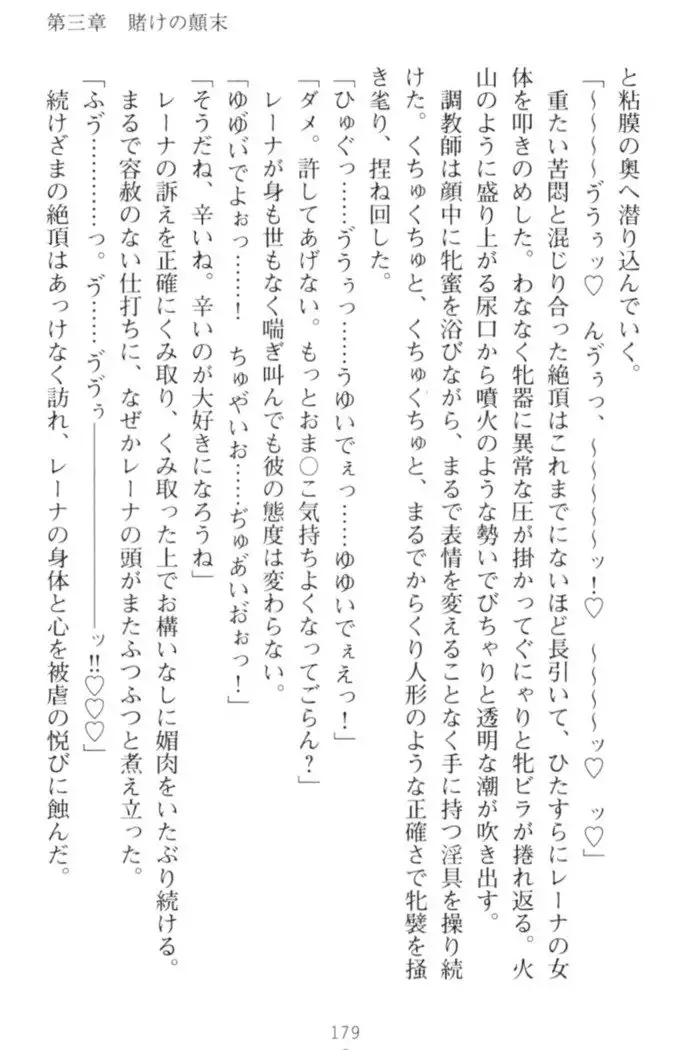 第三章　賭けの顛末
と粘膜の奥へ潜り込んでいく。
「～～～～ゔうぅッ♡　んゔぅっ、～～～～～ッ！♡　～～～～ッ♡　ッ♡」
　重たい苦悶と混じり合った絶頂はこれまでにないほど長引いて、ひたすらにレーナの女
体を叩きのめした。わななく牝器に異常な圧が掛かってぐにゃりと牝ビラが捲れ返る。火
山のように盛り上がる尿口から噴火のような勢いでびちゃりと透明な潮が吹き出す。
　調教師は顔中に牝蜜を浴びながら、まるで表情を変えることなく手に持つ淫具を操り続
けた。くちゅくちゅと、くちゅくちゅと、まるでからくり人形のような正確さで牝襞を掻
き毟り、捏ね回した。
「ひゅぐっ……ゔうぅっ……うゆいでぇっ……ゆゆいでぇえっ！」
「ダメ。許してあげない。もっとおま○こ気持ちよくなってごらん？」
　レーナが身も世もなく喘ぎ叫んでも彼の態度は変わらない。
「ゆゔいでよぉっ……！　ちゅやいお……ぢゅあ゙いお゙ぉっ！」
「そうだね、辛いね。辛いのが大好きになろうね」
　レーナの訴えを正確にくみ取り、くみ取った上でお構いなしに媚肉をいたぶり続ける。
　まるで容赦のない仕打ちに、なぜかレーナの頭がまたふつふつと煮え立った。
「ふゔ…………っ。ゔ……ゔゔぅ――――――――ッ‼♡♡♡」
　続けざまの絶頂はあっけなく訪れ、レーナの身体と心を被虐の悦びに蝕んだ。
179